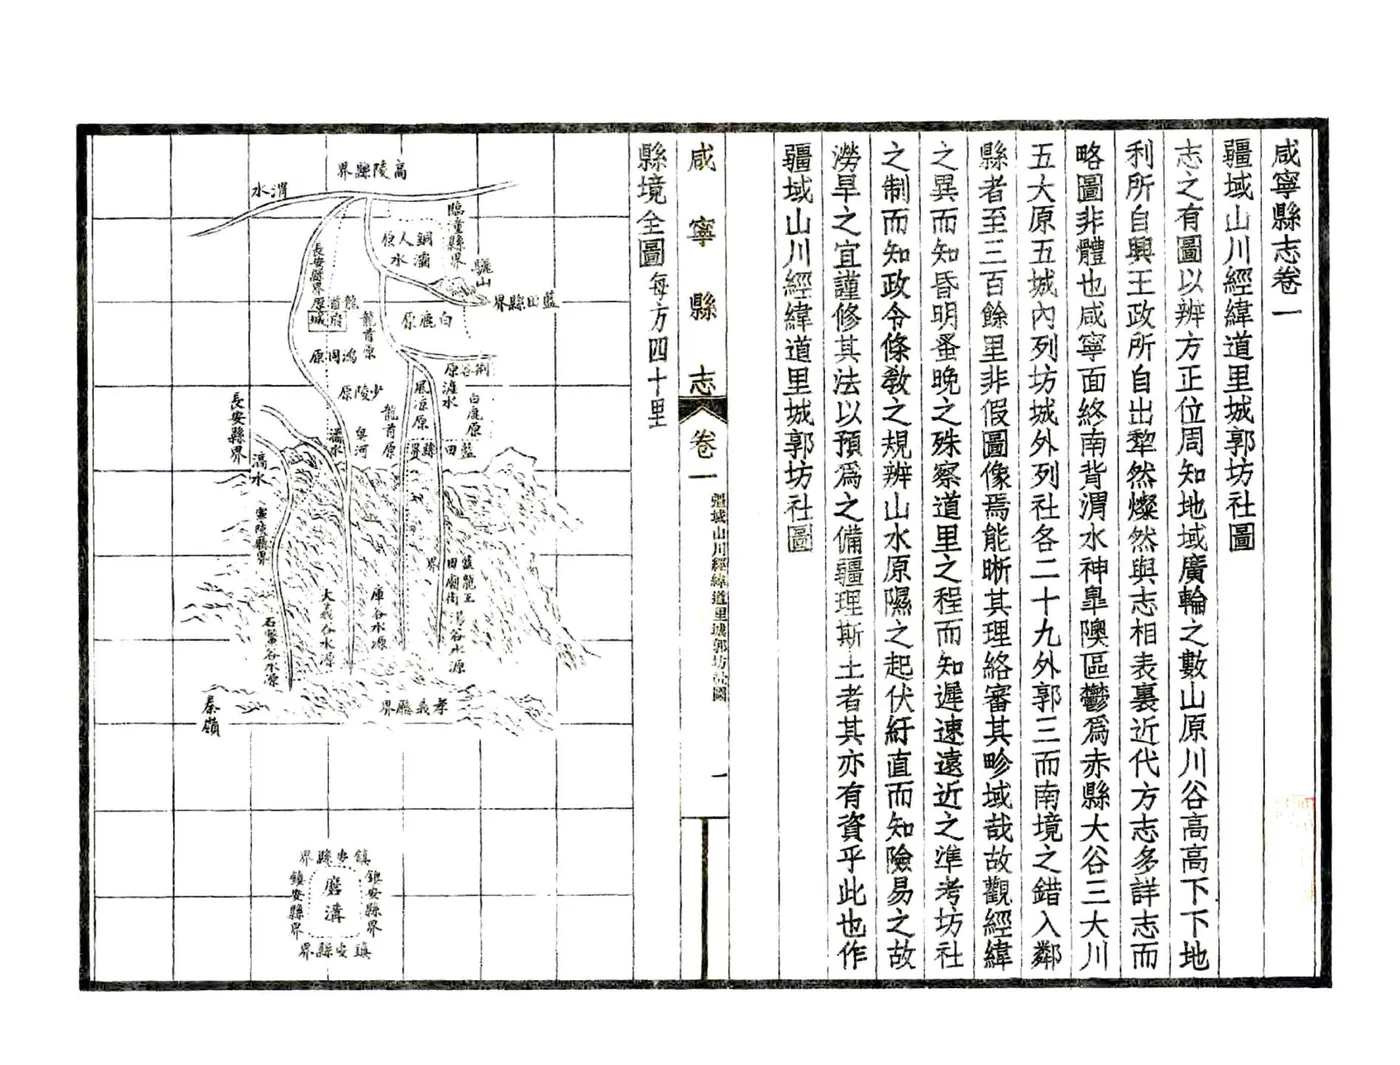 咸寧縣志卷一
疆域山川經緯道里城郭坊社圖
志之有圖以辨方正位周知地域廣輪之數山原川谷高高下下地
利所自興王政所自出犂然燦然與志相表裏近代方志多詳志而
略圖非體也咸寧面終南背渭水神皐隩區鬱爲赤縣大谷三大川
五大原五城內列坊城外列社各二十九外郭三而南境之錯入鄰
縣者至三百餘里非假圖像焉能晰其理絡審其畛域哉故觀經緯
之異而知昏明蚤晚之殊察道里之程而知遲速遠近之準考坊社
之制而知政令條敎之規辨山水原隰之起伏紆直而知險易之故
澇旱之宜謹修其法以預爲之備疆理斯土者其亦有資乎此也作
疆域山川經緯道里城郭坊社圖
咸寧縣志
卷一
疆域山川經緯道里城郭坊社圖
一
縣境全圖每方四十里
高陵縣界
渭水
臨潼縣界
銅人原
灞水
驪山
藍田縣界
長安縣界
龍首原
白鹿原
鴻固原
少陵原
荆谷
滻水
白鹿原
鳳凉原
龍首原
皇河
潏水
藍田縣界
長安縣界
滈水
寧陜廳界
大義谷水源
庫谷水源
湯谷水源
石鱉谷水源
孝義廳界
秦嶺
鎮安縣界
鎮安縣界
鎮安縣界
鎮安縣界
磨溝